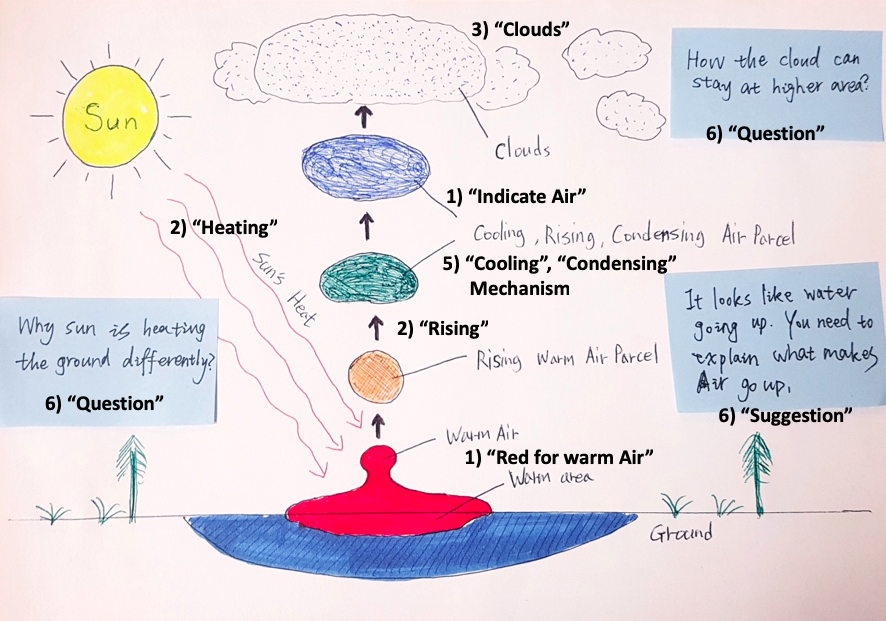 3) “Clouds”
How the cloud can
stay at higher area?
6) “Question”
Sun
Clouds
1) “Indicate Air”
2) “Heating”
Cooling, Rising, Condensing Air Parcel
5) “Cooling”, “Condensing”
Mechanism
Sun's Heat
It looks like water
going up. You need to
explain what makes
Air go up.
6) “Suggestion”
Why sun is heating
the ground differently?
6) “Question”
2) “Rising”
Rising Warm Air Parcel
Warm Air
1) “Red for warm Air”
Warm area
Ground